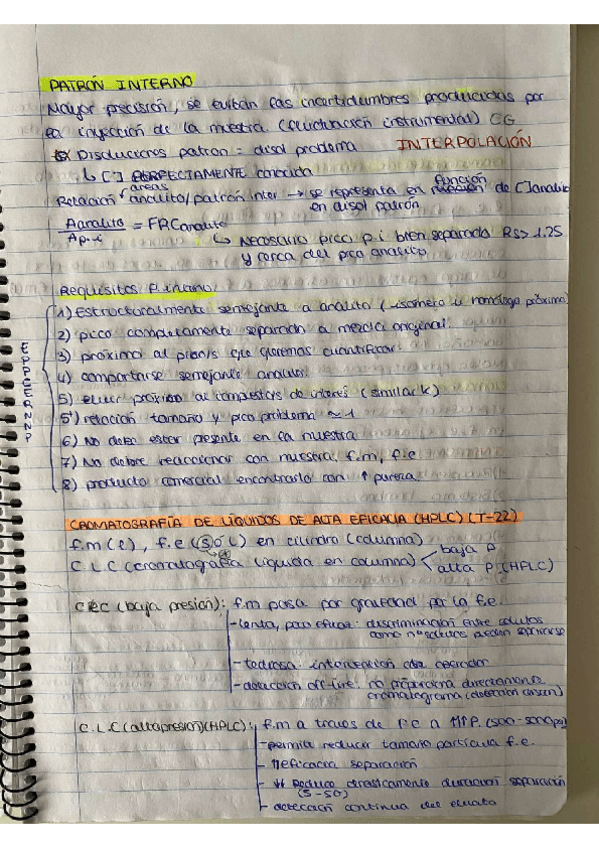 PATRÓN INTERNO
Mayor precisión, se evitan las incertidumbres producidas por
la inyección de la muestra (fluctuación instrumental) CG
Disoluciones patron = disol problema INTERPOLACIÓN
↳ [ ] PERFECTAMENTE conocida
Relación áreas analito/patrón inter → se representa en función de [ ]analito
en disol patrón
Aanalito / Ap.i = FRCanalito
↳ Necesario pico p.i bien separado Rs > 1.25
y cerca del pico analito
Requisitos P. interno
1) Estructuralmente semejante a analito (isómero u homólogo próximo)
2) pico completamente separado a mezcla original.
3) próximo al que queremos cuantificar
4) comportarse semejante analito
5) eluir próximo al compuestos de interés (similar k)
5') relación tamaño y pico problema ~ 1
6) No debe estar presente en la muestra
7) No debe reaccionar con muestra, f.m, f.e
8) producto comercial encontrarlo con ↑ pureza.
CROMATOGRAFÍA DE LÍQUIDOS DE ALTA EFICACIA (HPLC) (T-22)
f.m (l), f.e (S O L) en cilindro (columna)
C L C (cromatografía líquida en columna) baja P
alta P (HPLC)
CLC (baja presión): f.m pasa por gravedad por la f.e.
- Lenta, poco eficaz: discriminación entre solutos
- tediosa: intervención del operador
- detección off-line: no proporciona directamente
cromatograma
C.L.C (alta presion) (HPLC): f.m a traves de f.e a ↑↑P.
- permite reducir tamaño partícula f.e.
- ↑eficacia separación
- Reduce drasticamente duración separación
(5-50)
- detección continua del eluato